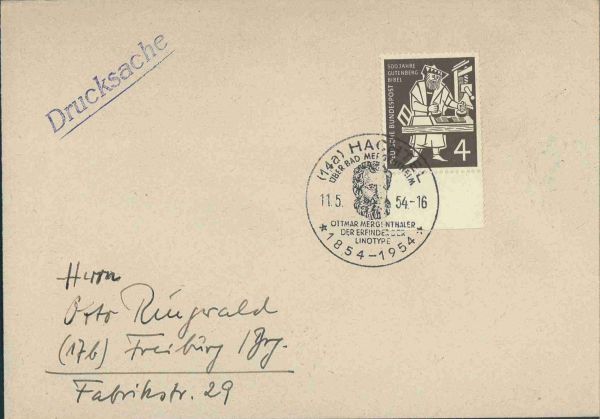 Drucksache
500 JAHRE
GUTENBERG
BIBEL
BUNDESPOST
4
(14a) HACHTEL
ÜBER BAD MERGENTHEIM
11.5. 54.-16
OTTMAR MERGENTHALER
DER ERFINDER DER
LINOTYPE
* 1854-1954 *
Herrn
Otto Ringwald
(17b) Freiburg / Brg.
Fabrikstr. 29